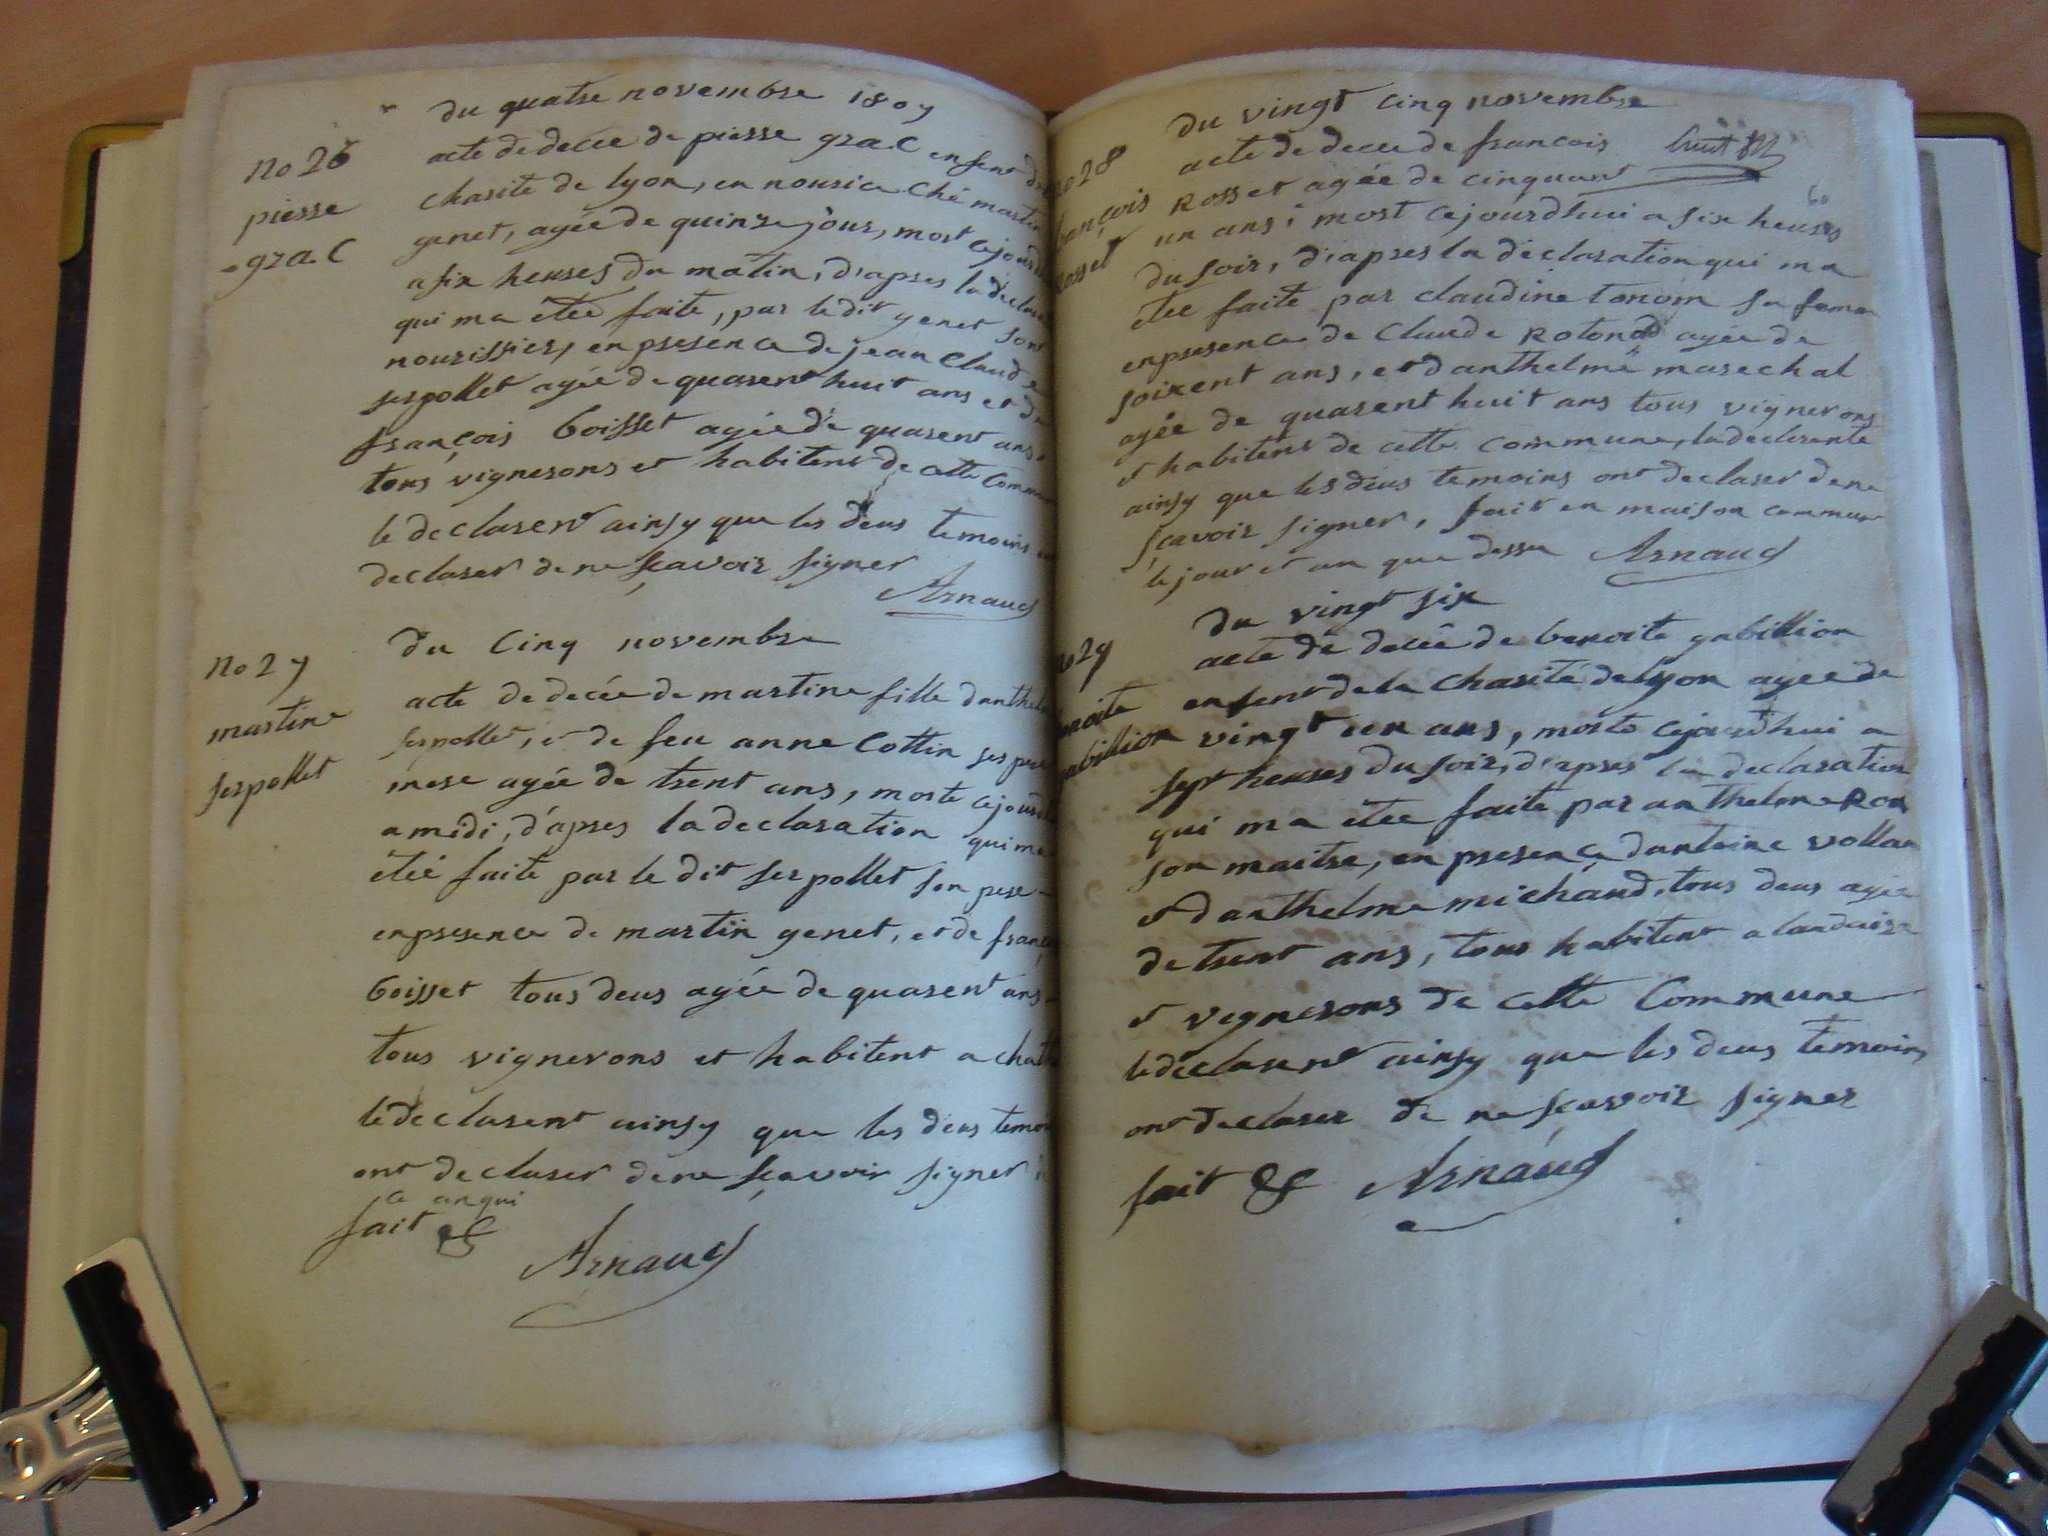 du quatre novembre 1807
No 26
pierre
grac
acte de decée de pierre grac enfent de
charité de lyon, en nourice ché martin
genet, agée de quinze jour, mort cejourd
a six heures du matin, d'apres la declara
qui ma étée faite, par le dit genet son
nourissier, en presence de jean claude
serpollet agée de quarent huit ans et de
françois boisset agée de quarent ans
tous vignerons et habitent de cette Commu
le declarent ainsy que les deus temoins
declarer de ne sçavoir signer
Arnaud
No 27
martine
serpollet
du Cinq novembre
acte de decée de martine fille danthel
serpollet, et de feu anne Cottin ses pere
mere agée de trent ans, morte cejourd
a midi, d'apres la declaration qui ma
étée faite par le dit serpollet son pere
en presence de martin genet, et de franç
boisset tous deus agée de quarent ans
tous vignerons et habitent a
le declarent ainsy que les deus temoi
ont declarer de ne sçavoir signer
fait &
Arnaud
du vingt cinq novembre
huit
60
no 28
françois
Rosset
acte de decee de francois
Rosset agée de cinquant
un ans; mort cejourdhui a six heures
du soir, d'apres la déclaration qui ma
étée faite par claudine sa femme
en presence de Claude agée de
soixent ans, et danthelme marechal
agée de quarent huit ans tous vignerons
et habitent de cette commune, la declerente
ainsy que les deus temoins ont declarer de ne
sçavoir signer, fait en maison commune
le jour et an que dessu Arnaud
no 29
benoite
gabillion
du vingt six
acte de decée de benoite gabillion
enfent de la charité de lyon agée de
vingt un ans, morte cejourdhui a
sept heures du soir, d'apres la declaration
qui ma étée faite par anthelme
son maitre, en presence dantoine
et danthelme michaud, tous deus agée
de trent ans, tous habitent a
et vignerons de cette Commune
le declarent ainsy que les deus temoins
ont declarer de ne scavoir signer
fait & Arnaud